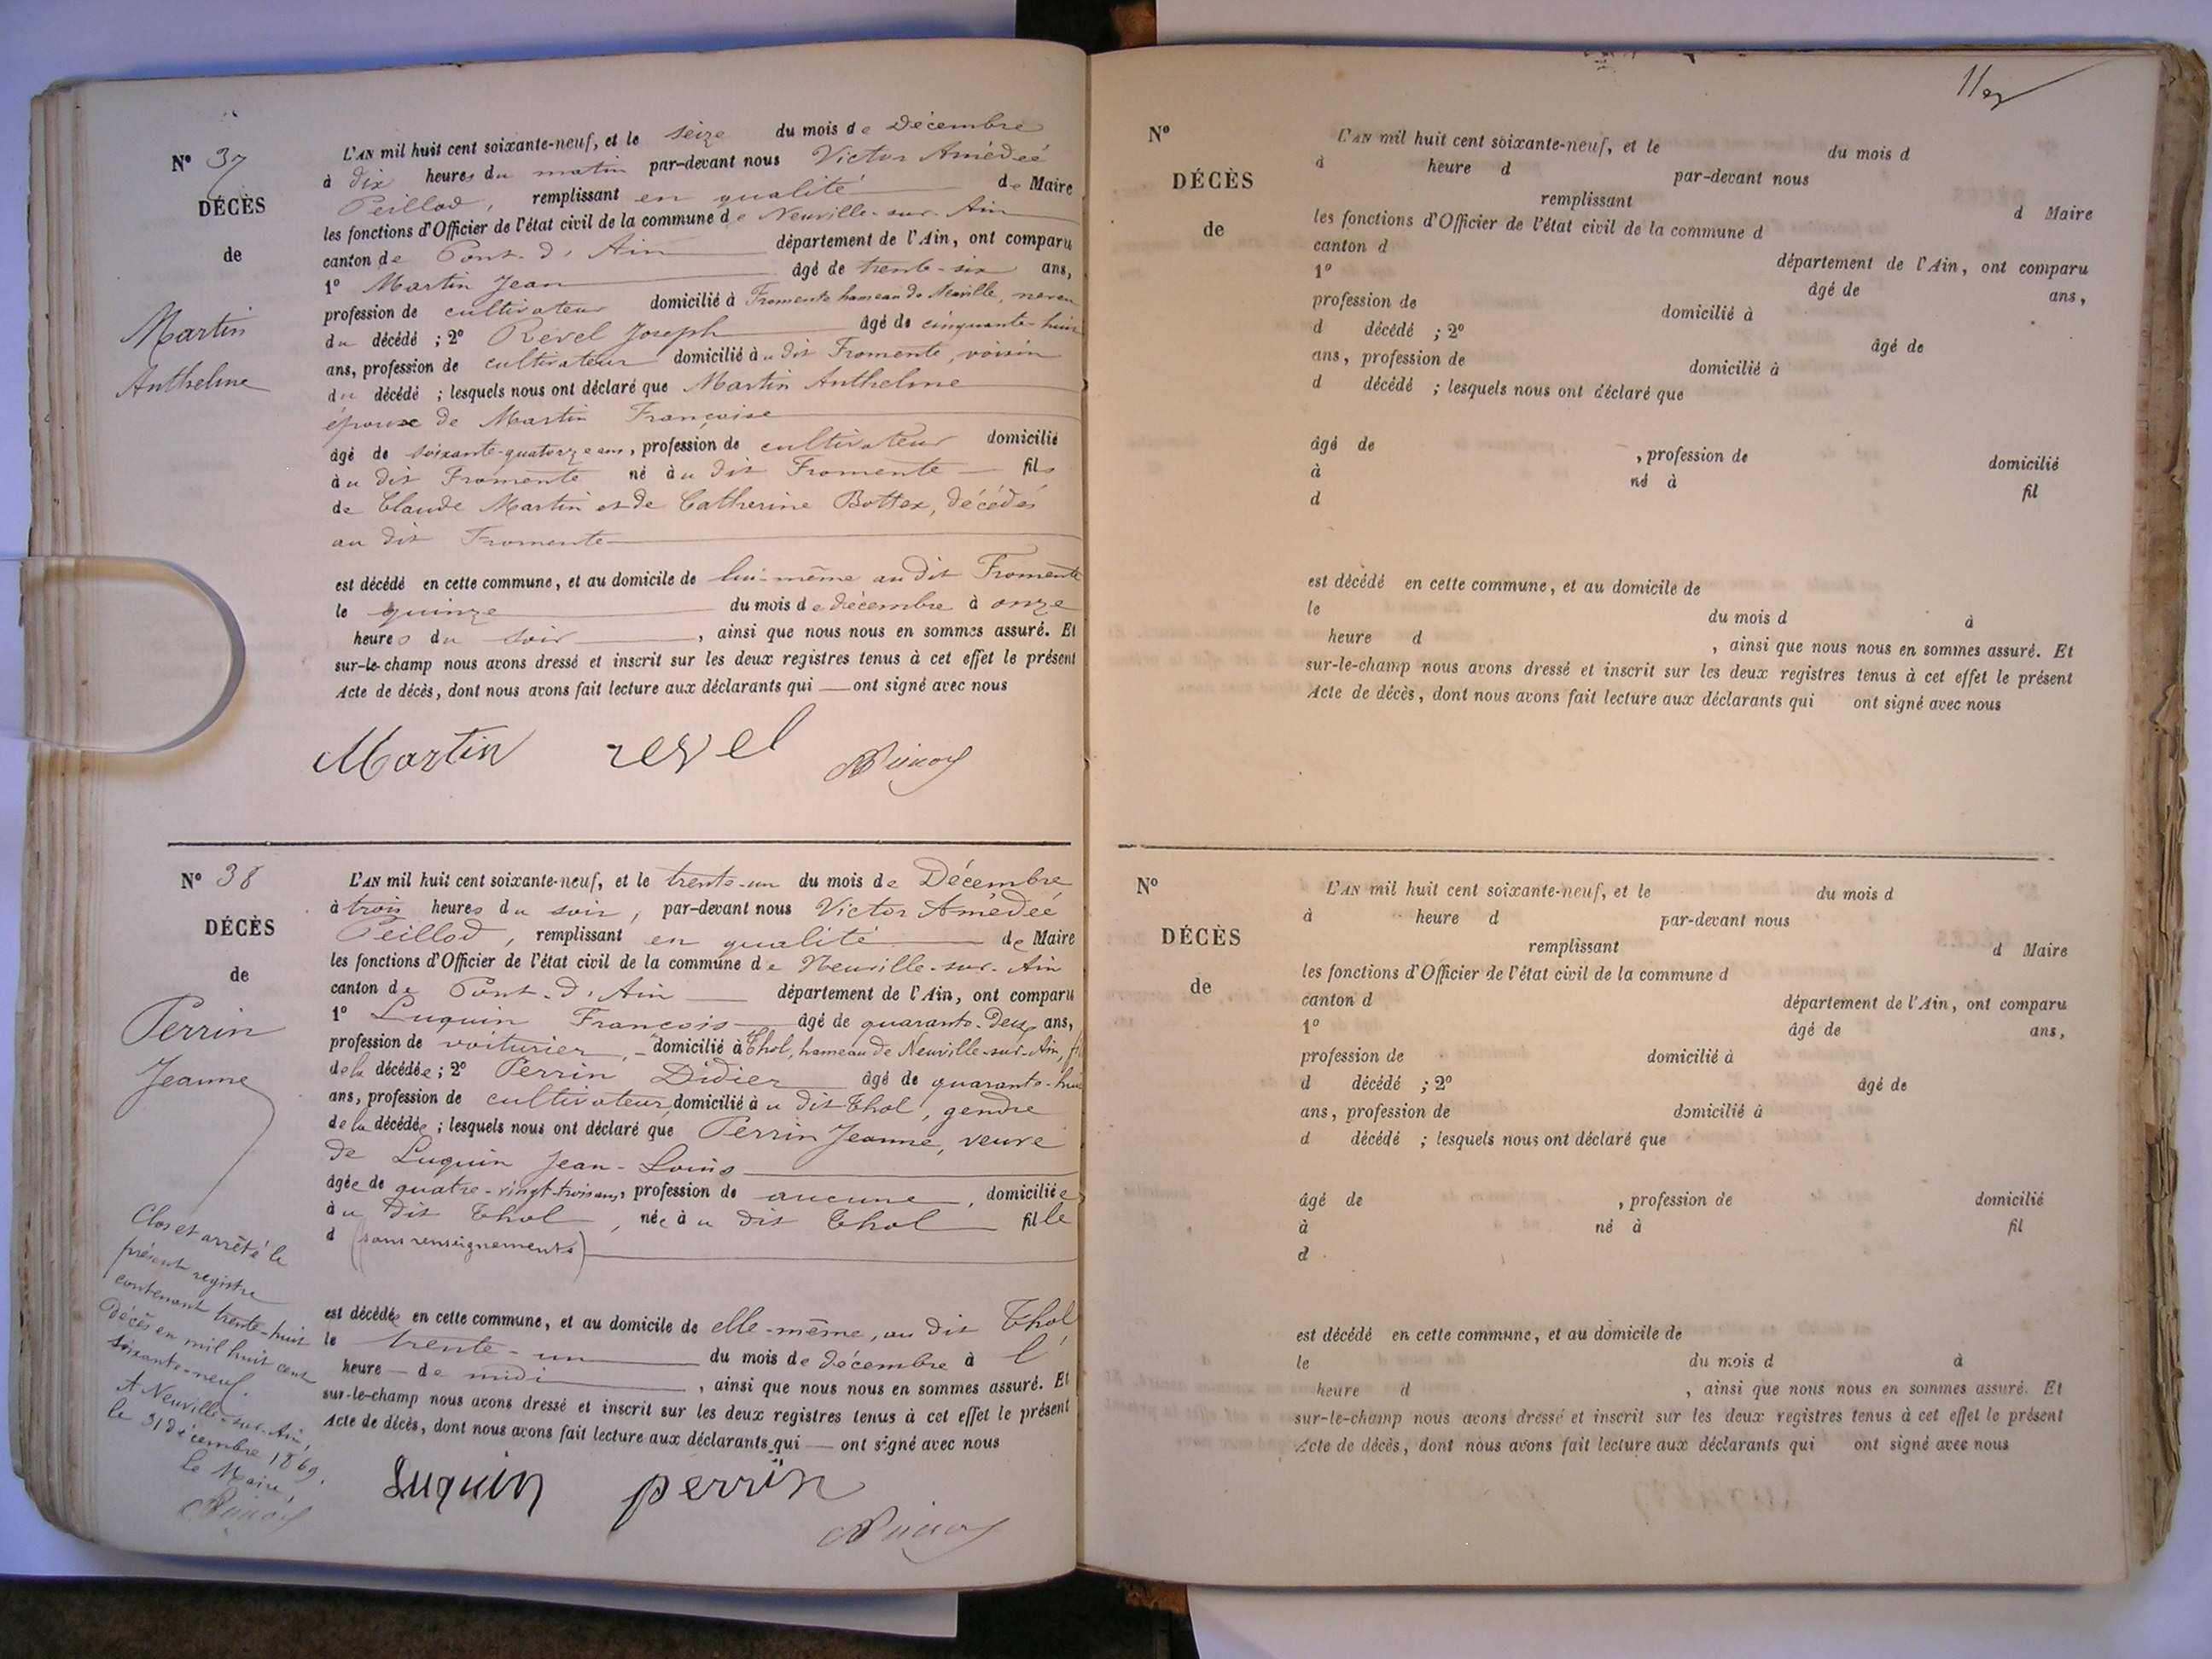 N° 37
DÉCÈS
de
Martin
Anthelme
L'AN mil huit cent soixante-neuf, et le seize du mois de Décembre
à dix heures du matin par-devant nous Victor Amédeé
Peillod, remplissant en qualité de Maire
les fonctions d'Officier de l'état civil de la commune de Neuville-sur-Ain
canton de Pont-d'Ain département de l'Ain, ont comparu
1° Martin Jean âgé de trente-six ans,
profession de cultivateur domicilié à Fromente hameau de Neuville, neveu
du décédé ; 2° Revel Joseph âgé de cinquante-huit
ans, profession de cultivateur domicilié au dit Fromente, voisin
du décédé ; lesquels nous ont déclaré que Martin Anthelme
époux de Martin Françoise
âgé de soixante-quatorze ans, profession de cultivateur domicilié
au dit Fromente né au dit Fromente fils
de Claude Martin et de Catherine Bottex, décédés
au dit Fromente
est décédé en cette commune, et au domicile de lui-même au dit Fromente
le quinze du mois de décembre à onze
heures du soir, ainsi que nous nous en sommes assuré. Et
sur-le-champ nous avons dressé et inscrit sur les deux registres tenus à cet effet le présent
Acte de décès, dont nous avons fait lecture aux déclarants qui — ont signé avec nous
Martin revel
N° 38
DÉCÈS
de
Perrin
Jeanne
L'AN mil huit cent soixante-neuf, et le trente-un du mois de Décembre
à trois heures du soir, par-devant nous Victor Amédeé
Peillod, remplissant en qualité de Maire
les fonctions d'Officier de l'état civil de la commune de Neuville-sur-Ain
canton de Pont-d'Ain département de l'Ain, ont comparu
1° Luquin François âgé de quarante-deux ans,
profession de voiturier, domicilié à Thol, hameau de Neuville-sur-Ain,
de la décédée ; 2° Perrin Didier âgé de quarante-huit
ans, profession de cultivateur domicilié au dit Thol, gendre
de la décédée ; lesquels nous ont déclaré que Perrin Jeanne, veuve
de Luquin Jean-Louis
âgée de quatre-vingt-trois ans, profession de aucune, domiciliée
au dit Thol, née au dit Thol fille
d (sans renseignements)
est décédée en cette commune, et au domicile de elle-même, au dit Thol
le trente-un du mois de décembre à l'
heure — de midi, ainsi que nous nous en sommes assuré. Et
sur-le-champ nous avons dressé et inscrit sur les deux registres tenus à cet effet le présent
Acte de décès, dont nous avons fait lecture aux déclarants qui — ont signé avec nous
Luquin perrin
Clos et arrêté le
présent registre
contenant trente-huit
décès en mil huit cent
soixante-neuf.
A Neuville-sur-Ain,
le 31 décembre 1869.
Le Maire,
N°
DÉCÈS
de
L'AN mil huit cent soixante-neuf, et le du mois d
à heure d par-devant nous
remplissant d Maire
les fonctions d'Officier de l'état civil de la commune d
canton d département de l'Ain, ont comparu
1° âgé de ans,
profession de domicilié à
d décédé ; 2° âgé de
ans, profession de domicilié à
d décédé ; lesquels nous ont déclaré que
âgé de , profession de domicilié
à né à fil
d
est décédé en cette commune, et au domicile de
le du mois d à
heure d , ainsi que nous nous en sommes assuré. Et
sur-le-champ nous avons dressé et inscrit sur les deux registres tenus à cet effet le présent
Acte de décès, dont nous avons fait lecture aux déclarants qui ont signé avec nous
N°
DÉCÈS
de
L'AN mil huit cent soixante-neuf, et le du mois d
à heure d par-devant nous
remplissant d Maire
les fonctions d'Officier de l'état civil de la commune d
canton d département de l'Ain, ont comparu
1° âgé de ans,
profession de domicilié à
d décédé ; 2° âgé de
ans, profession de domicilié à
d décédé ; lesquels nous ont déclaré que
âgé de , profession de domicilié
à né à fil
d
est décédé en cette commune, et au domicile de
le du mois d à
heure d , ainsi que nous nous en sommes assuré. Et
sur-le-champ nous avons dressé et inscrit sur les deux registres tenus à cet effet le présent
Acte de décès, dont nous avons fait lecture aux déclarants qui ont signé avec nous